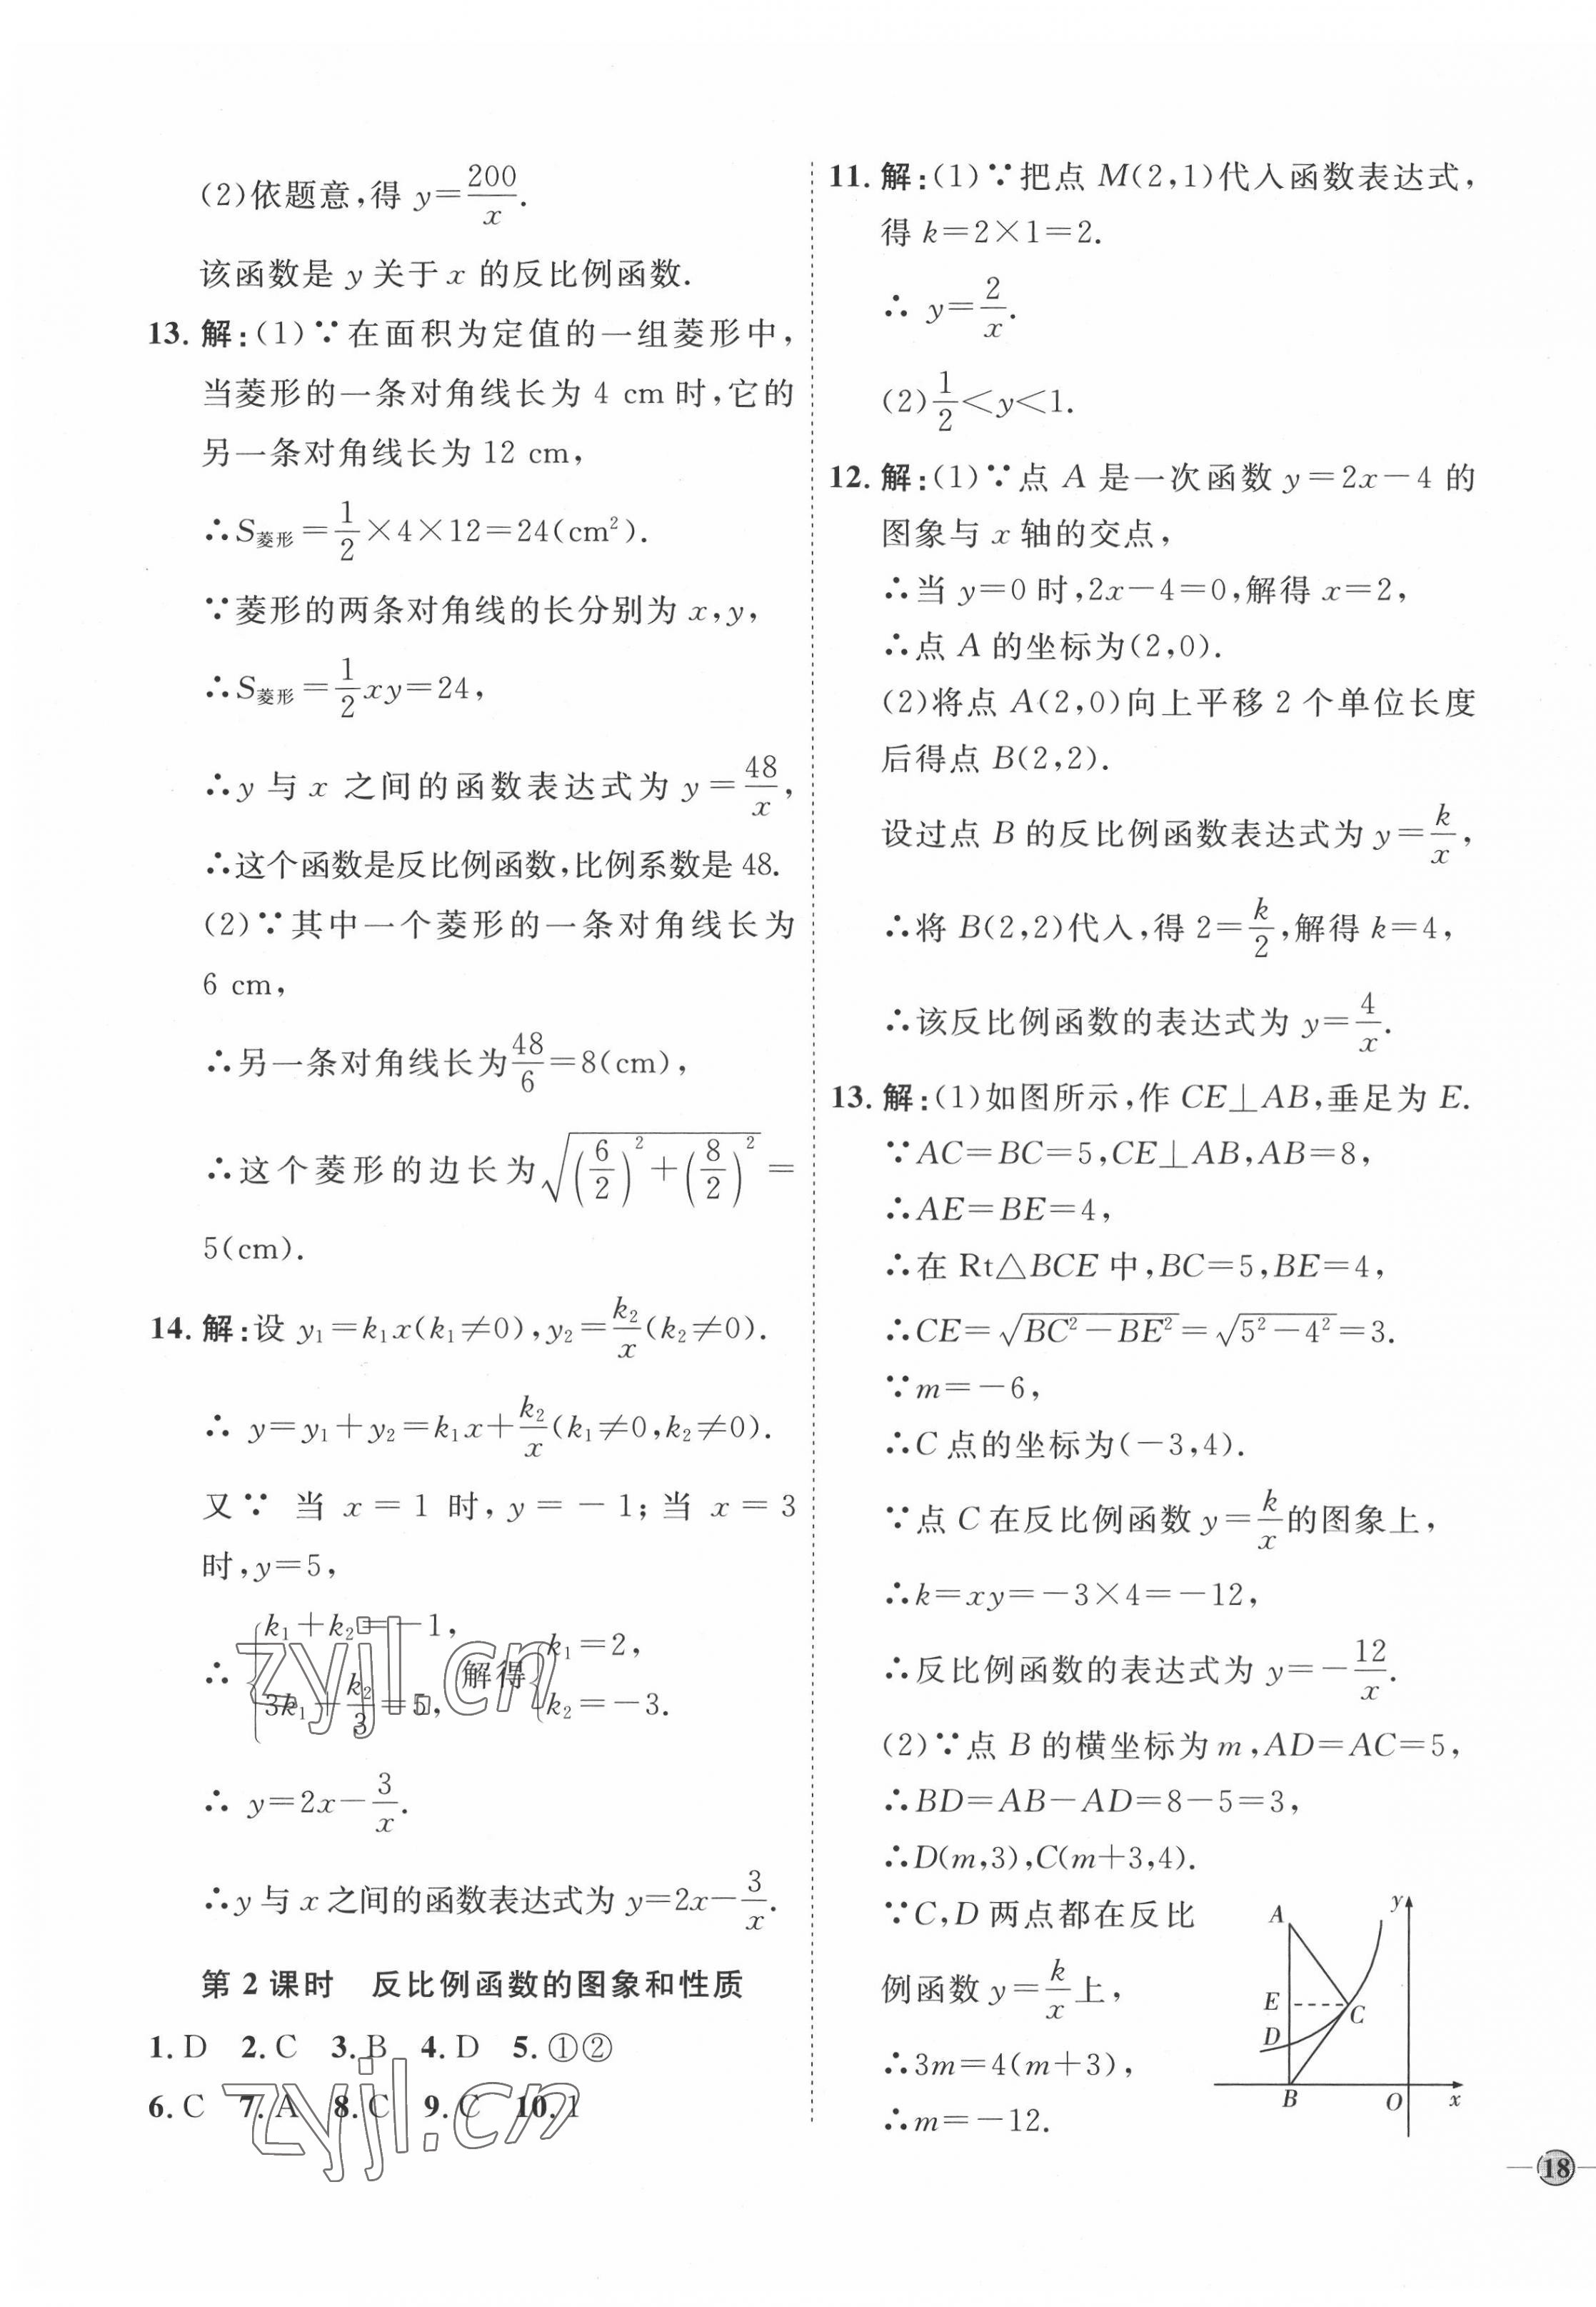 (2)依题意,得 y=200/x.
该函数是 y 关于 x 的反比例函数.
13. 解:(1)∵在面积为定值的一组菱形中,
当菱形的一条对角线长为 4 cm 时,它的
另一条对角线长为 12 cm,
∴S菱形=1/2×4×12=24(cm²).
∵菱形的两条对角线的长分别为 x,y,
∴S菱形=1/2xy=24,
∴y 与 x 之间的函数表达式为 y=48/x,
∴这个函数是反比例函数,比例系数是 48.
(2)∵其中一个菱形的一条对角线长为
6 cm,
∴另一条对角线长为48/6=8(cm),
∴这个菱形的边长为√((6/2)²+(8/2)²)=
5(cm).
14. 解:设 y₁=k₁x(k₁≠0),y₂=k₂/x(k₂≠0).
∴ y=y₁+y₂=k₁x+k₂/x(k₁≠0,k₂≠0).
又∵ 当 x=1 时,y=-1;当 x=3
时,y=5,
∴{k₁+k₂=-1, 3k₁+k₂/3=5, 解得{k₁=2, k₂=-3.
∴ y=2x-3/x.
∴y 与 x 之间的函数表达式为 y=2x-3/x.
第 2 课时 反比例函数的图象和性质
1. D 2. C 3. B 4. D 5. ①②
6. C 7. A 8. C 9. C 10. 1
zyjl.cn
zyjl.cn
11. 解:(1)∵把点 M(2,1)代入函数表达式,
得 k=2×1=2.
∴ y=2/x.
(2)1/2<y<1.
12. 解:(1)∵点 A 是一次函数 y=2x-4 的
图象与 x 轴的交点,
∴当 y=0 时,2x-4=0,解得 x=2,
∴点 A 的坐标为(2,0).
(2)将点 A(2,0)向上平移 2 个单位长度
后得点 B(2,2).
设过点 B 的反比例函数表达式为 y=k/x,
∴将 B(2,2)代入,得 2=k/2,解得 k=4,
∴该反比例函数的表达式为 y=4/x.
13. 解:(1)如图所示,作 CE⊥AB,垂足为 E.
∵AC=BC=5,CE⊥AB,AB=8,
∴AE=BE=4,
∴在 Rt△BCE 中,BC=5,BE=4,
∴CE=√(BC²-BE²)=√(5²-4²)=3.
∵m=-6,
∴C 点的坐标为(-3,4).
∵点 C 在反比例函数 y=k/x的图象上,
∴k=xy=-3×4=-12,
∴反比例函数的表达式为 y=-12/x.
(2)∵点 B 的横坐标为 m,AD=AC=5,
∴BD=AB-AD=8-5=3,
∴D(m,3),C(m+3,4).
∵C,D 两点都在反比
例函数 y=k/x上,
∴3m=4(m+3),
∴m=-12.
y
A
E
C
D
B
O
x
18